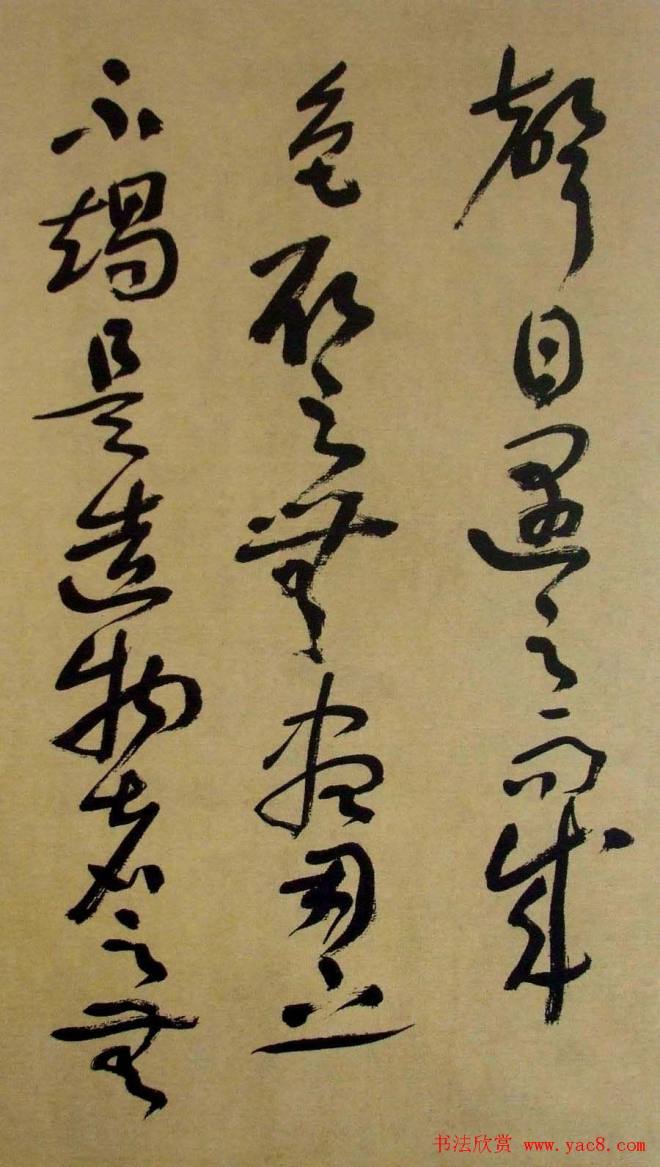 聲目遇之而成
色取之無禁用之
不竭是造物者之無
书法欣赏 www.yac8.com